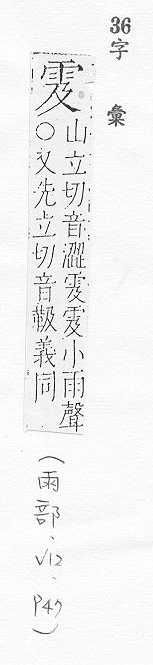 36字彙
雭
山立切音澀雭雭小雨聲
○又先立切音靸義同
(雨部、V12、P47)